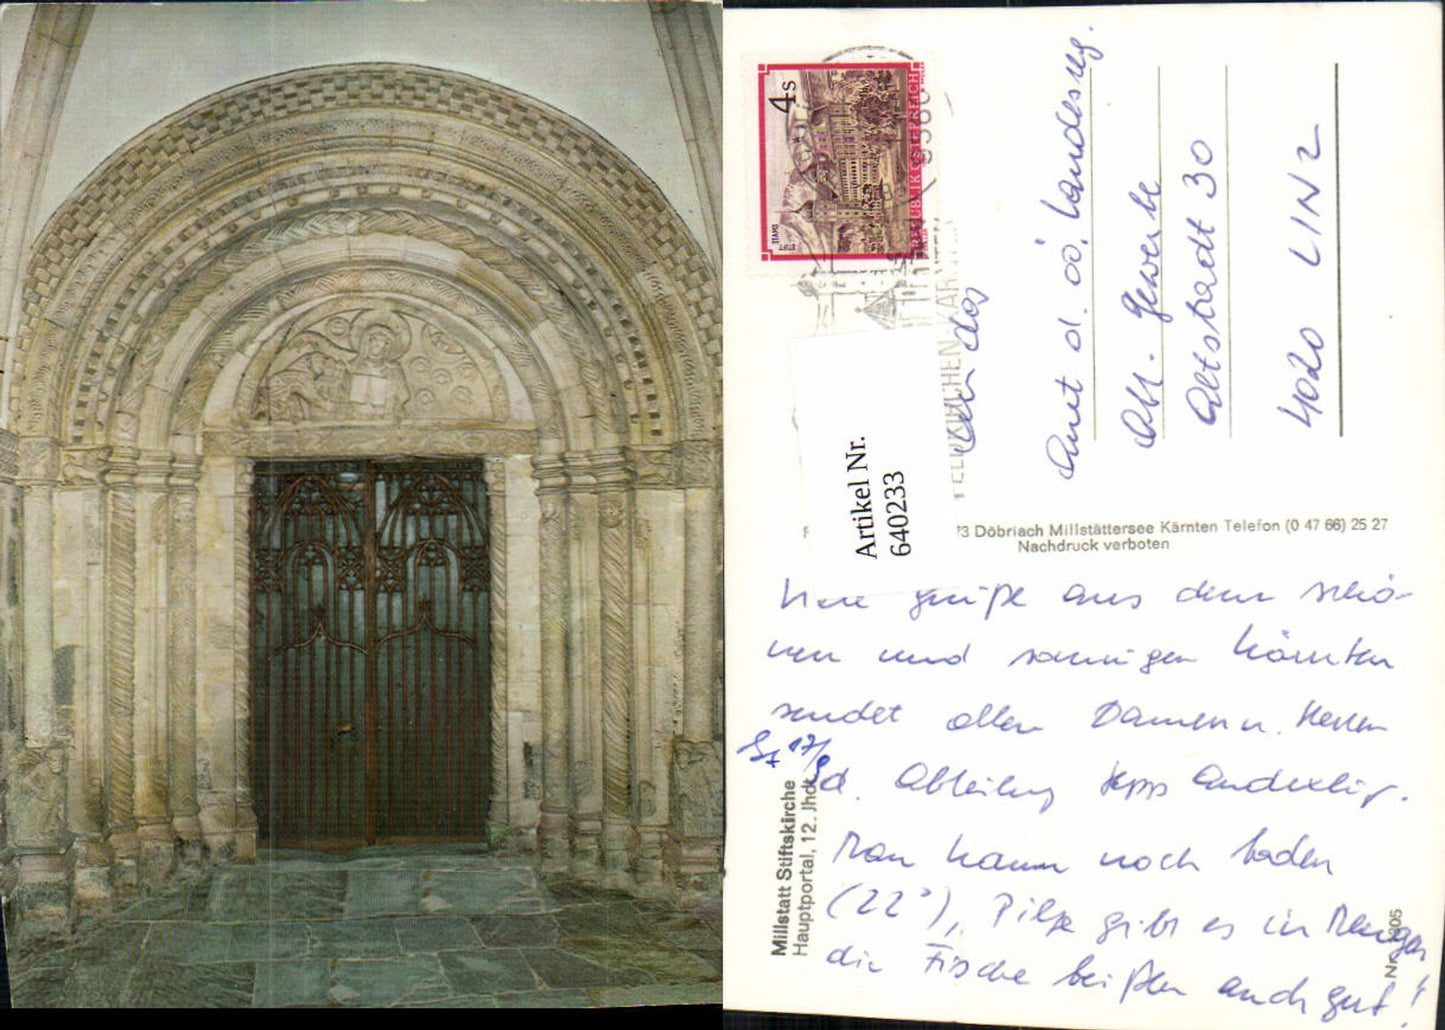 4s
REPUBLIK ÖSTERREICH
STIFT STAMS
An das
Amt d. oö. Landesreg.
Abt. Gewerbe
Altstadt 30
4020 LINZ
Artikel Nr.
640233
73 Döbriach Millstättersee Kärnten Telefon (0 47 66) 25 27
Nachdruck verboten
Viele Grüße aus dem schö-
nen und sonnigen Kärnten
sendet allen Damen u. Herren
d. Abteilung Sepp
Man kann noch baden
(22°), Pilze gibt es in Mengen
die Fische beißen auch gut!
17/9
Millstatt Stiftskirche
Hauptportal, 12. Jhdt.